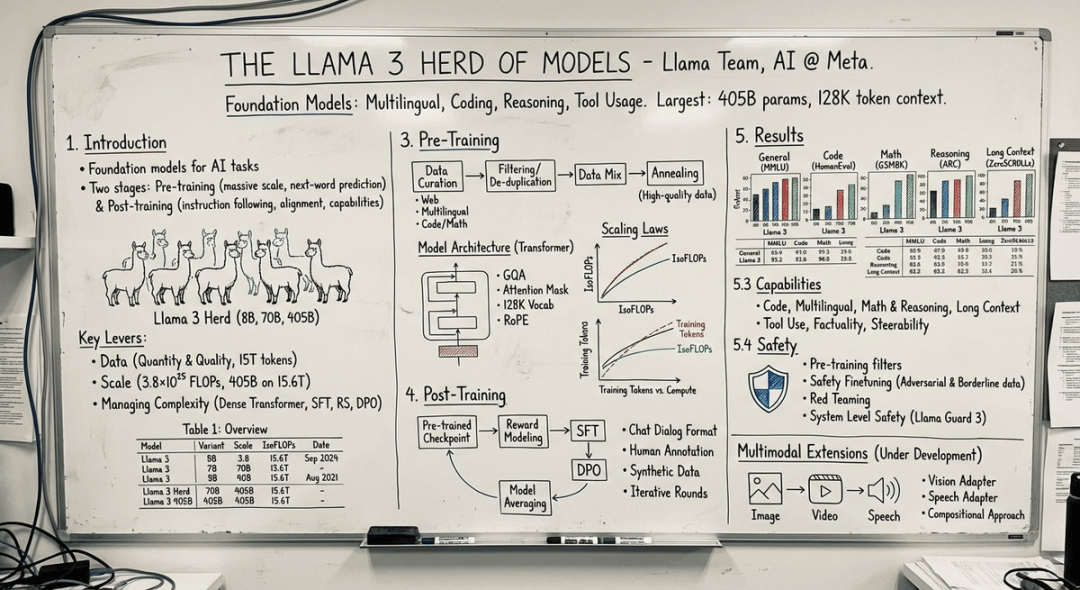 THE LLAMA 3 HERD OF MODELS - Llama Team, AI @ Meta.
Foundation Models: Multilingual, Coding, Reasoning, Tool Usage. Largest: 405B params, 128K token context.
1. Introduction
• Foundation models for AI tasks
• Two stages: Pre-training (massive scale, next-word prediction)
& Post-training (instruction following, alignment, capabilities)
Llama 3 Herd (8B, 70B, 405B)
Key Levers:
• Data (Quantity & Quality, 15T tokens)
• Scale (3.8×10²⁵ FLOPs, 405B on 15.6T)
• Managing Complexity (Dense Transformer, SFT, RS, DPO)
Table 1: Overview
Model Variant Scale IsoFLOPs Date
Llama 3 8B 3.8 15.6T Sep 2024
Llama 3 7B 70B 13.6T -
Llama 3 8B 40B 15.6T Aug 2021
Llama 3 Herd 70B 405B 15.6T -
Llama 3 405B 405B 405B 15.6T -
3. Pre-Training
Data Curation
Filtering/ De-duplication
Data Mix
Annealing
(High-quality data)
• Web
• Multilingual
• Code/Math
Model Architecture (Transformer)
• GQA
• Attention Mask
• 128K Vocab
• RoPE
Scaling Laws
IsoFLOPs
IsoFLOPs
IsoFLOPs
Training Tokens
IsoFLOPs
Training Tokens vs. Compute
4. Post-Training
Pre-trained Checkpoint
Reward Modeling
SFT
DPO
Model Averaging
• Chat Dialog Format
• Human Annotation
• Synthetic Data
• Iterative Rounds
5. Results
General (MMLU)
Code (HumanEval)
Math (GSM8K)
Reasoning (ARC)
Long Context
Llama 3
Llama 3
Llama 3
Llama 3
Llama 3
MMLU Code Math Long
General
Llama 3
MMLU Code Math Long
Code
Code
Reasoning
Long Context
5.3 Capabilities
• Code, Multilingual, Math & Reasoning, Long Context
• Tool Use, Factuality, Steerability
5.4 Safety
• Pre-training filters
• Safety Finetuning (Adversarial & Borderline data)
• Red Teaming
• System Level Safety (Llama Guard 3)
Multimodal Extensions (Under Development)
Image
Video
Speech
• Vision Adapter
• Speech Adapter
• Compositional Approach